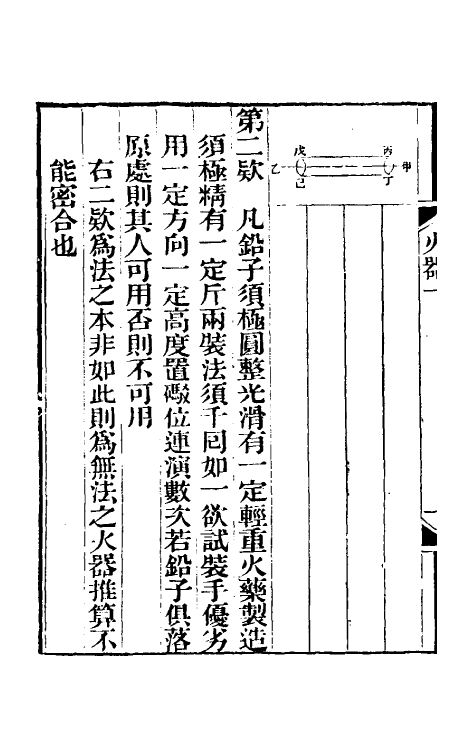 火器一
甲
丙
丁
戊
己
乙
第二欵　凡鉛子須極圓整光滑有一定輕重火藥製造
須極精有一定斤兩裝法須千囘如一欲試裝手優劣
用一定方向一定高度置礮位連演數次若鉛子俱落
原處則其人可用否則不可用
右二欵爲法之本非如此則爲無法之火器推算不
能密合也